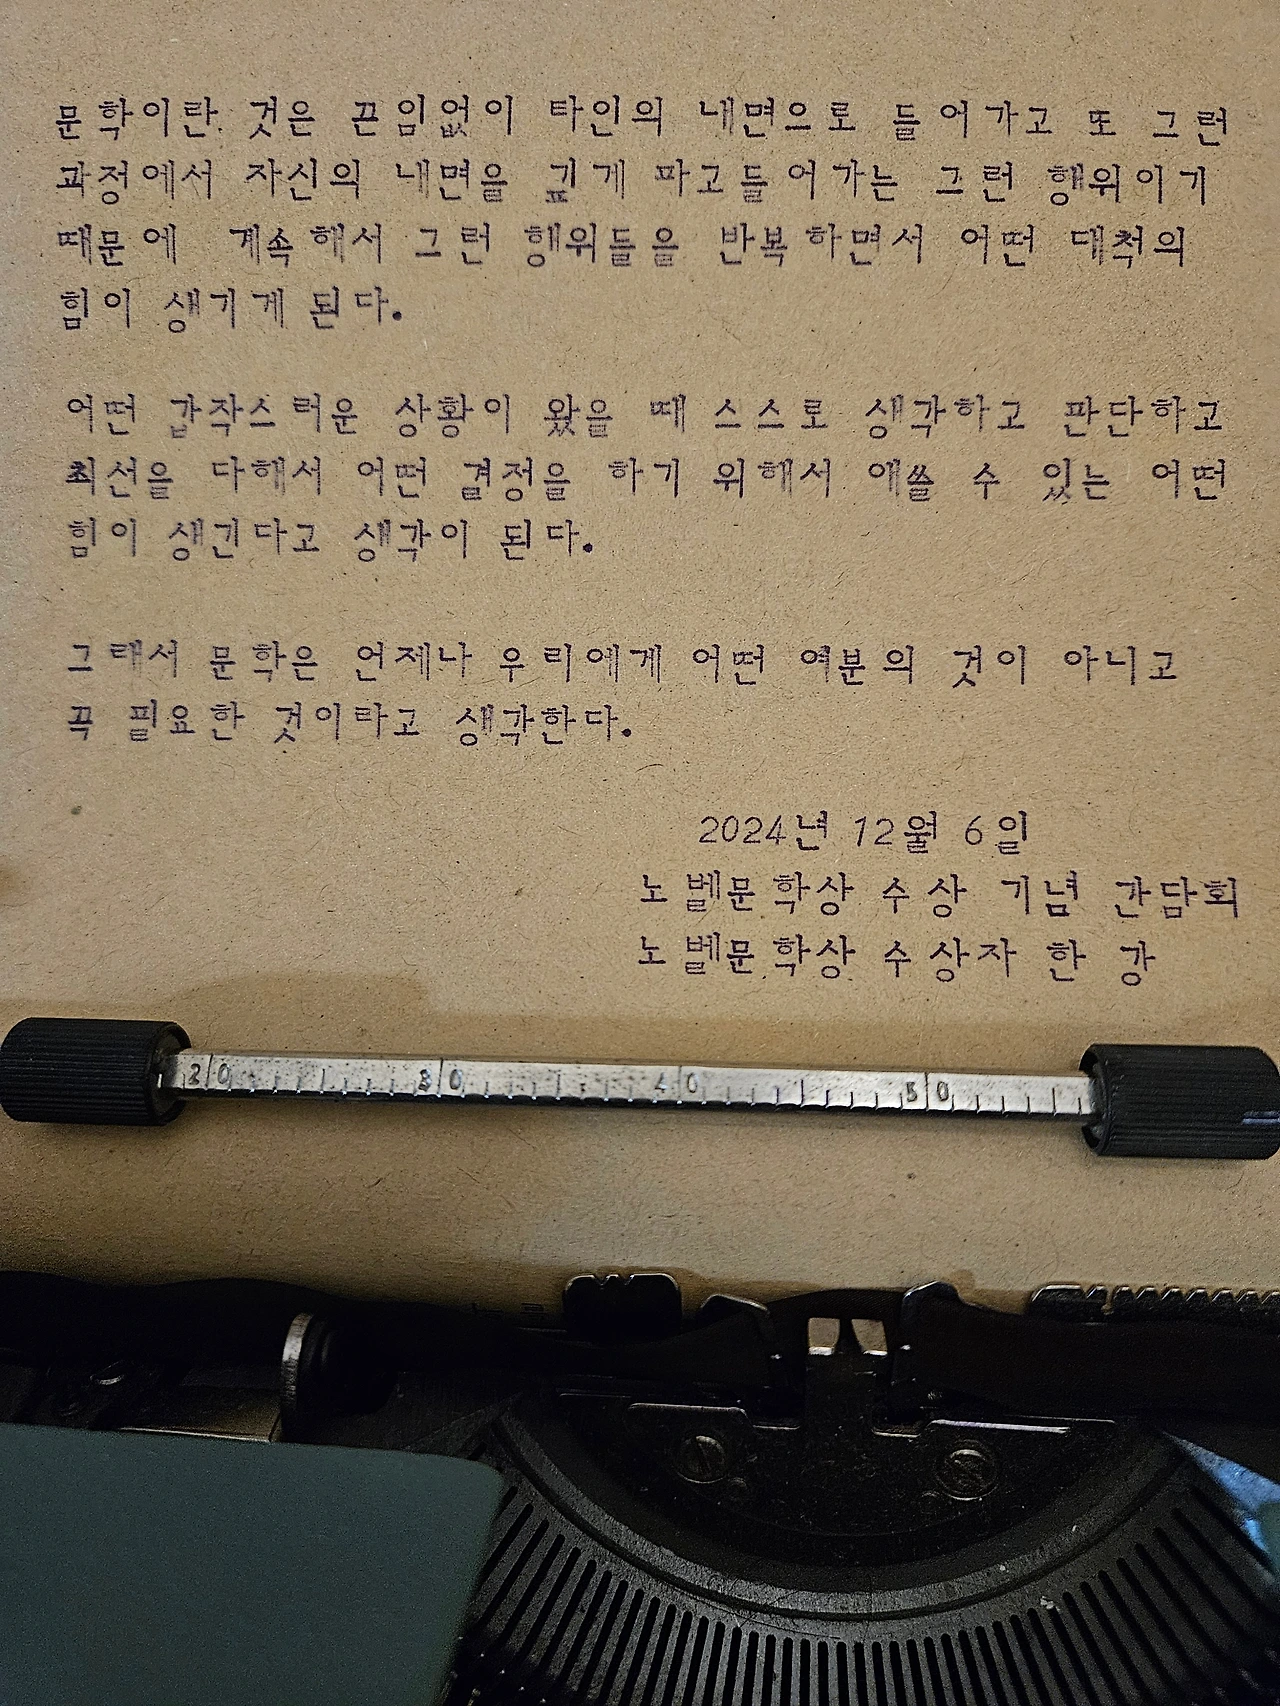 문학이란 것은 끈임없이 타인의 내면으로 들어가고 또 그런
과정에서 자신의 내면을 깊게 파고들어가는 그런 행위이기
때문에 계속해서 그런 행위들을 반복하면서 어떤 대척의
힘이 생기게 된다.
어떤 갑작스러운 상황이 왔을 때 스스로 생각하고 판단하고
최선을 다해서 어떤 결정을 하기 위해서 애쓸 수 있는 어떤
힘이 생긴다고 생각이 된다.
그래서 문학은 언제나 우리에게 어떤 여분의 것이 아니고
꼭 필요한 것이라고 생각한다.
2024년 12월 6일
노벨문학상 수상 기념 간담회
노벨문학상 수상자 한 강
20 30 40 50